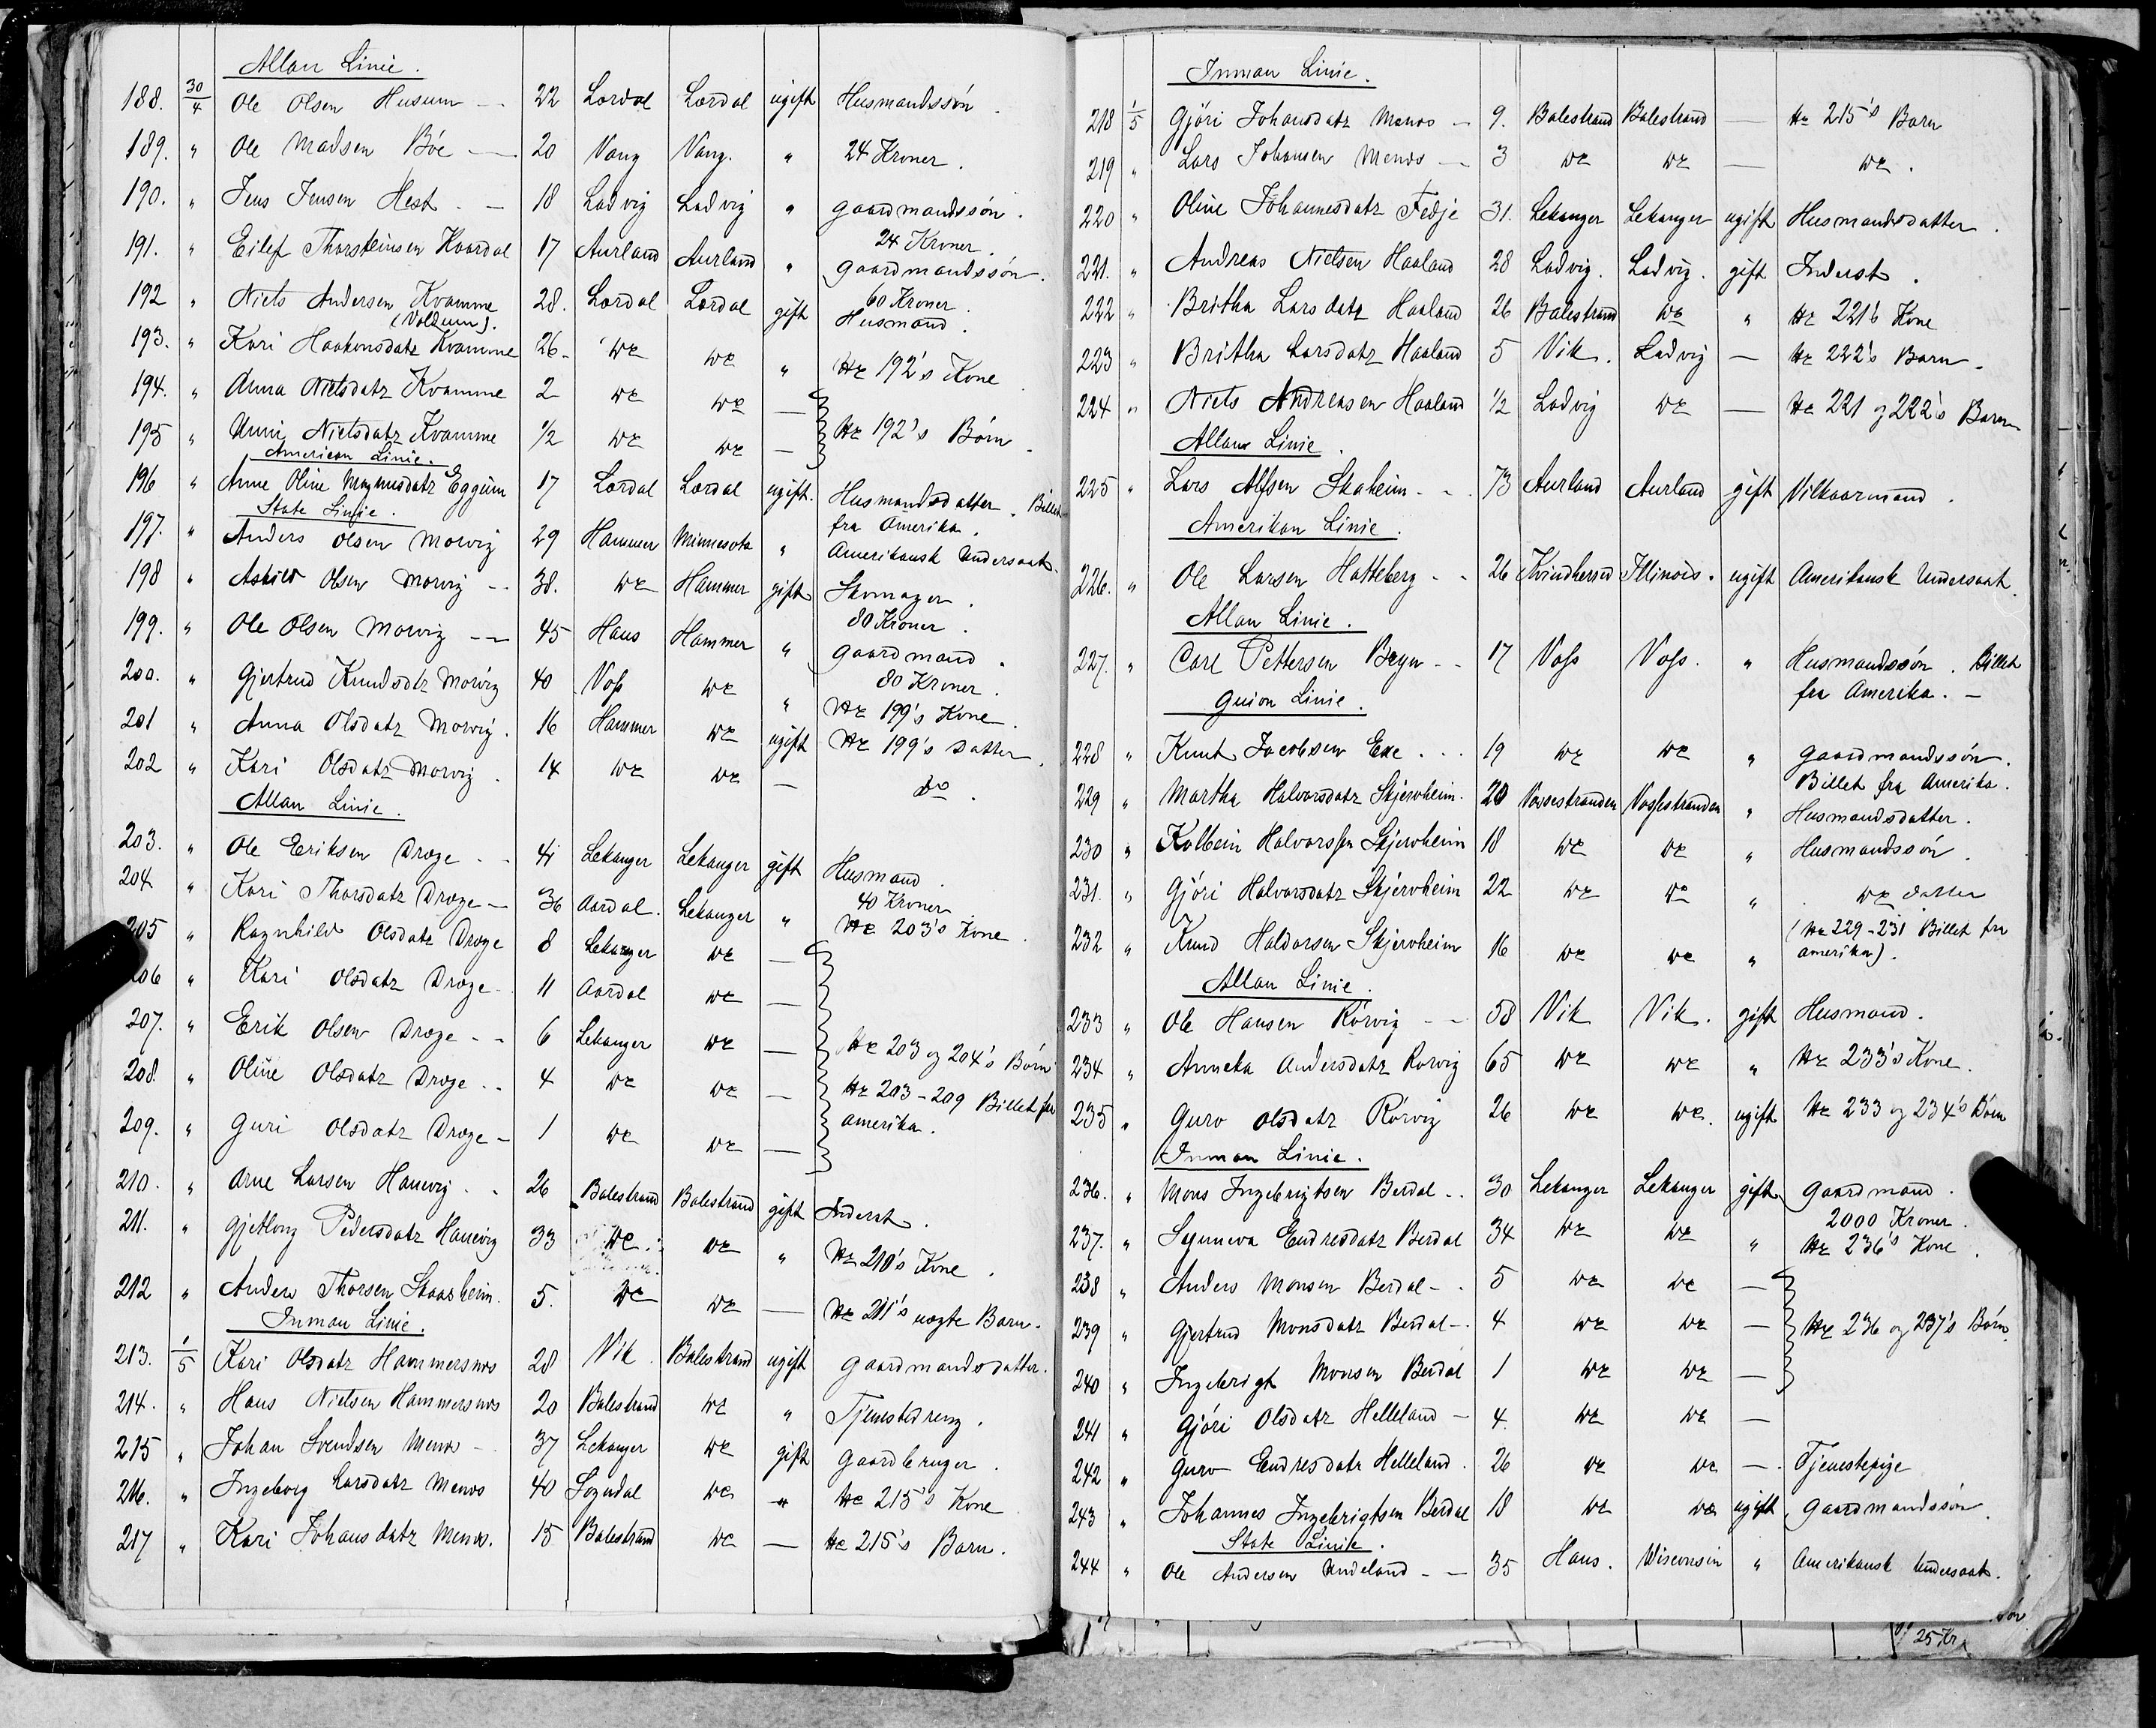 Allan Linie.
188. 30/4 Ole Olsen Husum — 22 Lærdal Lærdal ugift Husmandssøn.
189. " Ole Madsen Böe — 20 Vang Vang. " 24 Kroner.
190. " Jens Jensen Hest. — 18 Ladvig Ladvig " gaardmandssøn.
24 Kroner
191. " Eilef Thorsteinsen Hvardal 17 Aurland Aurland " gaardmandssøn.
60 Kroner
192 " Niels Andersen Kvamme 28. Lærdal Lærdal gift Husmand.
(Voldum).
193. " Kari Haakonsdatr Kvamme 26- do do " No 192's Kone
194. " Anna Nielsdatr Kvamme 2 do do —
195 " Unni Nielsdatr Kvamme 1/2 do do — No 192's Börn
American Linie.
196 " Anne Oline Magnusdatr Eggum 17 Lærdal Lærdal ugift. Husmandsdatter. Billet
State Linie. fra Amerika.
197. " Anders Olsen Morvig 29 Hammer Minnesota " Amerikansk Undersaat.
198 " Askild Olsen Morvig -- 38. do Hammer gift Skomager.
80 Kroner.
199. " Ole Olsen Morvig -- 45 Haus Hammer " gaardmand.
80 Kroner.
200. " Gjertrud Knudsdtr Morvig 40 Voss do " No 199's Kone.
201 " Anna Olsdatr Morvig. 16 Hammer do ugift No 199's datter.
202 " Kari Olsdatr Morvig. 14 do do — do.
Allan Linie.
203. " Ole Eeriksen Dræge -- 41 Lekanger Lekanger gift Husmand
40 Kroner
204. " Kari Thorsdatr Dræge — 36 Aardal. Lekanger " No 203's Kone.
205 " Ragnhild Olsdatr Dræge 8 Lekanger do —
206 " Kari Olsdatr Dræge- 11 Aardal do —
207. " Erik Olsen Dræge -- 6 Lekanger do — No 203 og 204's Börn
208. " Oline Olsdatr Dræge.. 4 do do — No 203-209 Billet fra
209. " Guri Olsdatr Dræge — 1 do do — amerika.
210. " Arne Larsen Hanevig.. 26 Balestrand Balestrand gift Inderst.
211. " Gjetlong Pedersdatr Hanevig 33 do do " No 210's Kone.
212 " Anders Thorsen Staarheim. 5. do do — No 211's uægte Barn.
Inman Linie.
213. 1/5 Kari Olsdatr Hammersnæs 28 Vik Balestrand ugift gaardmandsdatter.
214. " Hans Nielsen Hammersnæs 20 Balestrand do " Tjenestedreng.
215 " Johan Svendsen Menæs - 37 Lekanger do gift gaardbruger.
216. " Ingeborg Larsdatr Menæs 40 Sogndal do " No 215's Kone
217 " Kari Johansdatr Menæs. 15 Balestrand do — No 215's Barn.
Inman Linie.
218 1/5 Gjöri Johansdatr Menæs — 9. Balestrand Balestrand — No 215's Barn
219 " Lars Johansen Menæs — 3 do do — do.
220 " Oline Johannesdatr Fedje 31. Lekanger Lekanger ugift Husmandsdatter.
221. " Andreas Nielsen Haaland 28 Ladvig. Ladvig. gift Inderst.
222 " Britha Larsdatr Haaland 26 Balestrand do " No 221's Kone
223 " Britha Larsdatr Haaland 5 Vik. Ladvig — No 222's Barn.
224 " Niels Andreasen Haaland 1/2 Ladvig do — No 221 og 222's Barn
Allan Linie
225 " Lars Alfsen Skaheim -.. 73 Aurland Aurland gift Vilkaarmand.
Amerikan Linie.
226. " Ole Larsen Hatteberg -- 26 Kvindherred Illinois. ugift Amerikansk Undersaat.
Allan Linie.
227. " Carl Pettersen Bryn -- 17 Voss Voss. " Husmandssøn. Billet
fra Amerika. —
Guion Linie.
228 " Knut Jacobsen Eke ... 19 do do " gaardmandssøn.
Billet fra Amerika.
229 " Martha Halvorsdatr Skjervheim. 20 Vossestranden Vossestranden " Husmandsdatter.
230 " Kolbein Halvorssen Skjervheim 18 do do " Husmandssøn.
231. " Gjöri Halvorsdatr Skjervheim 22 do do " do datter
(No 229-231 Billet fra
232 " Knud Haldorsen Skjervheim 16 do do " amerika).
Allan Linie.
233 " Ole Hansen Rörvig -- 58 Vik Vik. gift Husmand.
234 " Anneka Andersdatr Rörvig 65 do do " No 233's Kone.
235 " Guro Olsdatr Rörvig 26 do do. ugift No 233 og 234's Börn
Inman Linie.
236. " Mons Ingebrigtsen Berdal.. 30 Lekanger Lekanger gift gaardmand.
2000 Kroner.
237. " Synneva Endresdatr Berdal 34 do do " No 236's Kone.
238 " Anders Monsen Berdal -. 5 do do —
239 " Gjertrud Monsdatr Berdal -. 4 do do — No 236 og 237's Börn
240 " Ingebrigt Monsen Berdal 1 do do —
241 " Gjöri Olsdatr Helleland — 4. do do —
242 " Guro Endresdatr Helleland. 26 do do —. Tjenestepige
243 " Johannes Ingebrigtsen Berdal 18 do do ugift gaardmandssøn
State Linie.
244 " Ole Andersen Undeland -- 35 Haus. Wisconsin " Amerikansk Undersaat.
25 Kr